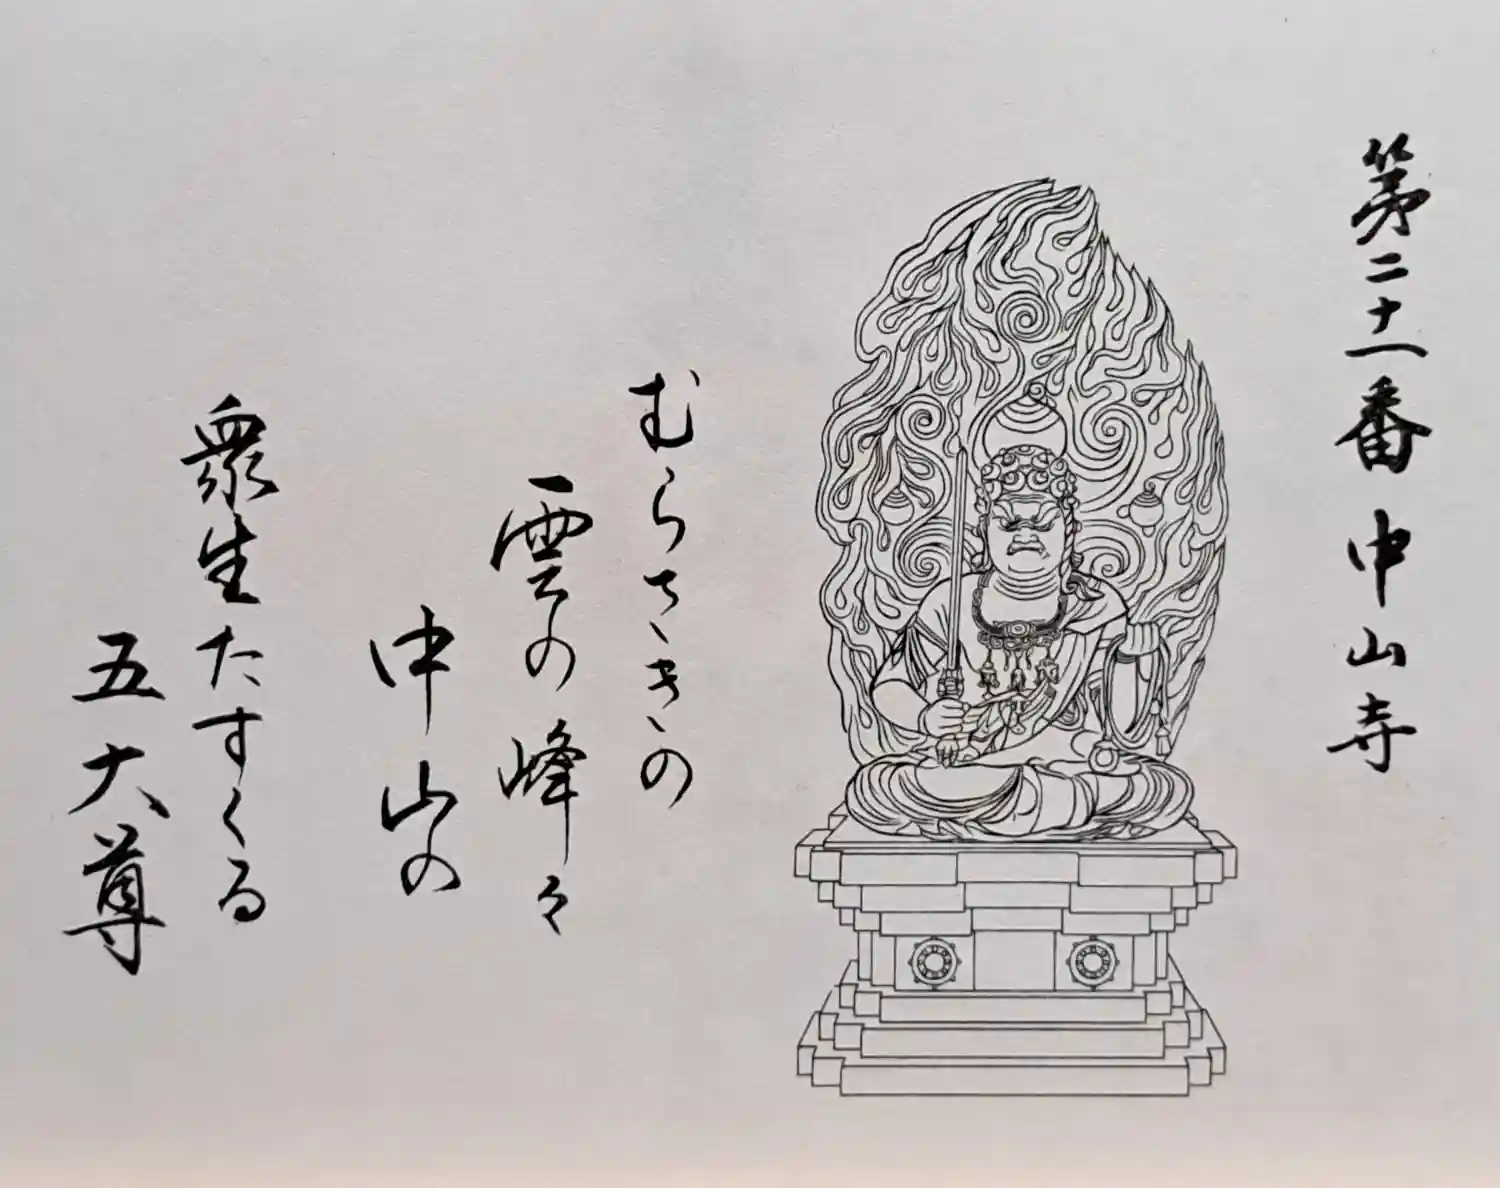 第二十一番 中山寺
むらさきの
雲の峰々
中山の
衆生たすくる
五大尊